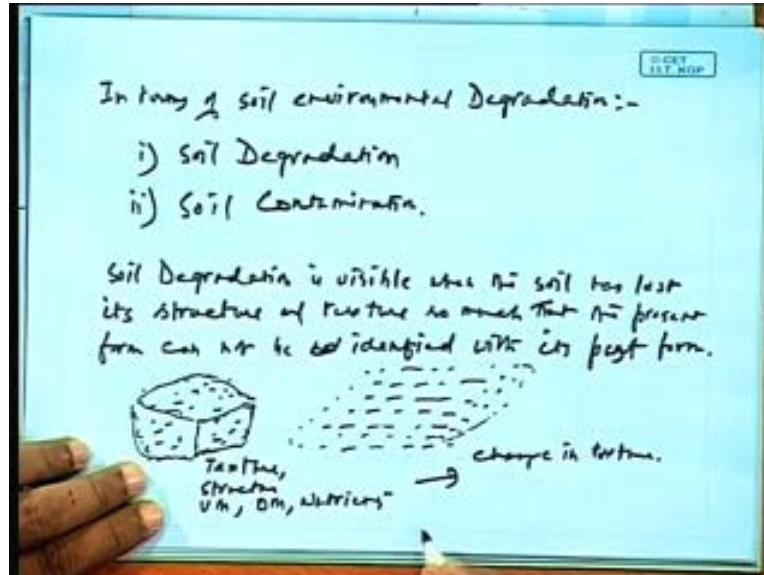 © CET
I.I.T. KGP
In terms of soil environmental Degradation:-
i) Soil Degradation
ii) Soil Contamination.
Soil Degradation is visible when the soil has lost
its structure and texture so much that the present
form can not be identified with its past form.
Texture,
Structure
OM, Nutrients
change in texture.